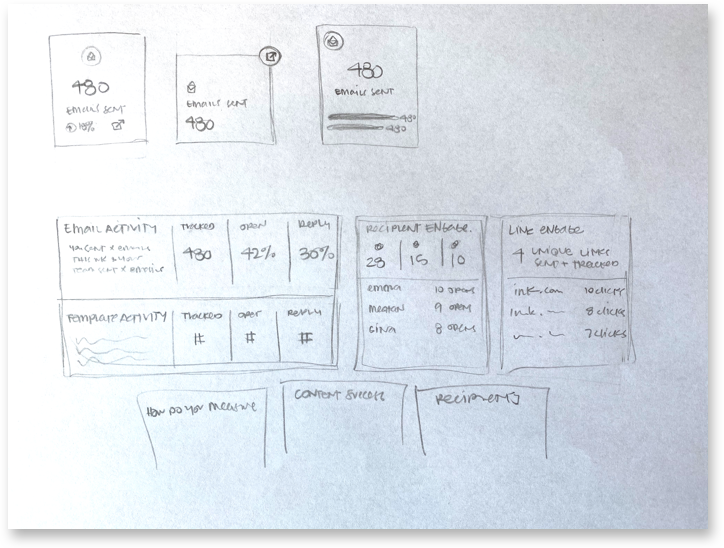 480
EMAILS SENT
18%
EMAILS SENT
480
480
EMAILS SENT
480
480
EMAIL ACTIVITY
TRACKED
OPEN
REPLY
480
42%
30%
TEMPLATE ACTIVITY
TRACKED
OPEN
REPLY
#
#
#
RECIPIENT ENGAGE.
23
15
10
EMMA 10 OPENS
MEAGAN 9 OPEN
GINA 8 OPENS
LINK ENGAGE
4 UNIQUE LINKS
SENT + TRACKED
10 CLICKS
8 CLICKS
7 CLICKS
HOW DO YOU MEASURE
CONTENT SUCCESS
RECIPIENTS